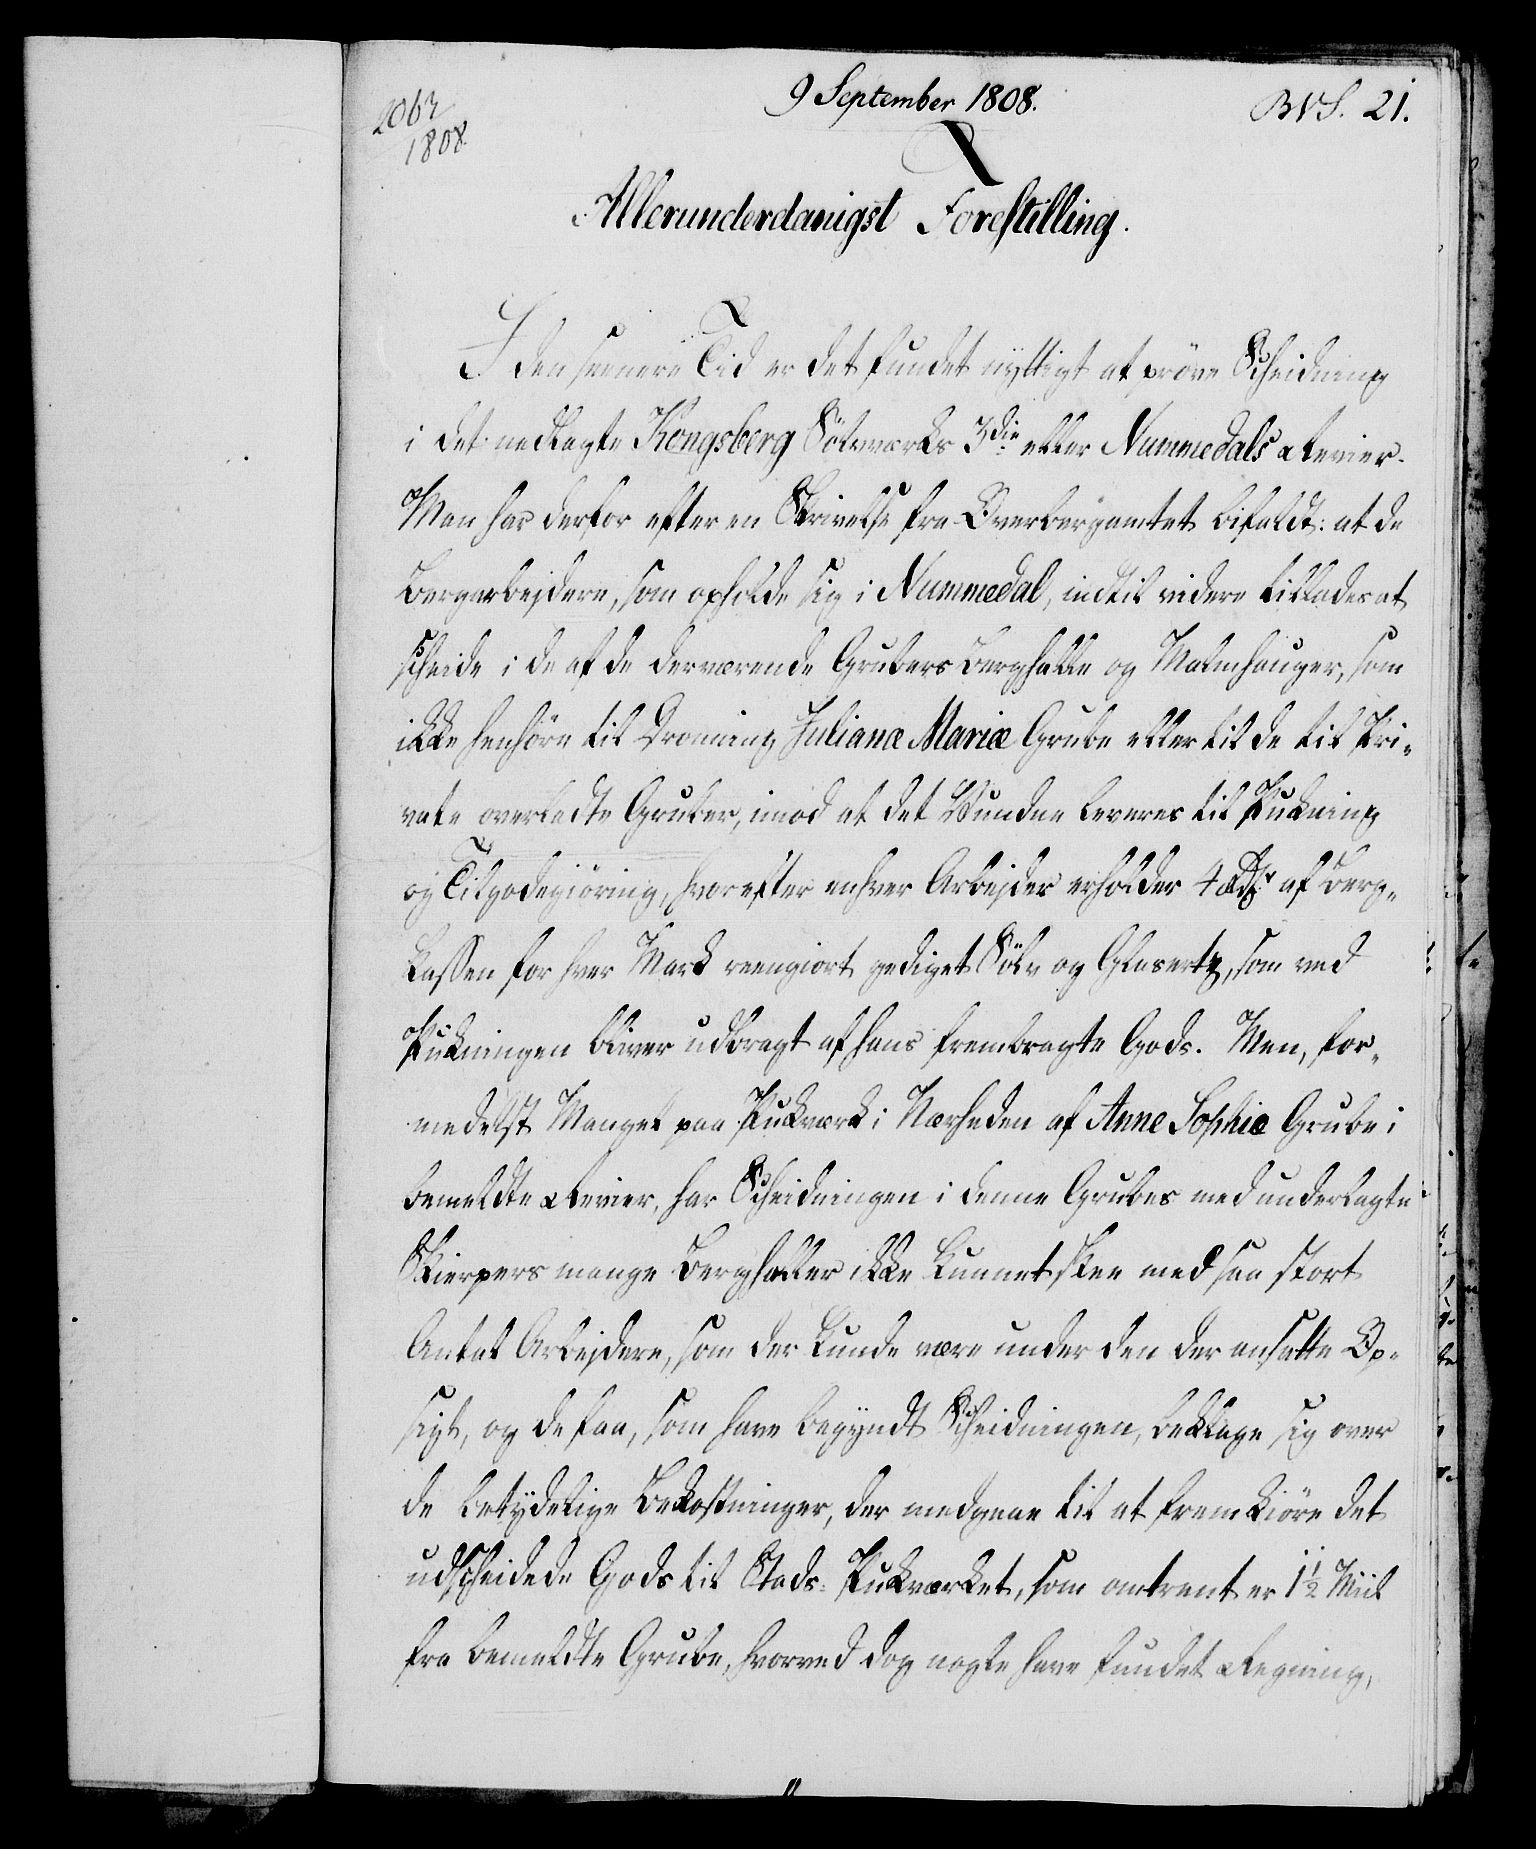 2063
1808
9 September 1808.
BVS. 21.
Allerunderdanigst Forestilling.
I den seenere Tid er det fundet nyttigt at pröve Scheidning
i det nedlagte Kongsberg Sölvværks 3die eller Nummedals Revier.
Man har derfor efter en Skrivelse fra Overbergamtet bifaldt: at de
Bergarbejdere, som opholde sig i Nummedal, indtil videre tillades at
scheide i de af de derværende Grubers Berghalle og Malmhauger, som
ikke henhöre til Dronning Julianæ Mariæ Grube eller til de til Pri-
vate overladte Gruber, imod at det Vundne leveres til Pukning
og Tilgodegiöring, hvorefter enhver Arbejder erholder 4 Rdlr af Berg-
kassen for hver Mark reengiort gediget Sölv og Glasertz, som ved
Pukningen bliver udbragt af hans frembragte Gods. Men, for-
medelst Mangel paa Pukværk i Nærheden af Anne Sophiæ Grube i
bemeldte Revier, har Scheidningen i denne Grubes med underlagte
Skierpers mange Berghaller ikke kunnet skee med saa stort
Antal Arbejdere, som der kunde være under den der ansatte Op-
sigt, og de faa, som have begyndt Scheidningen, beklage sig over
de betydelige Bekostninger, der medgaae til at fremkiöre det
udscheidede Gods til Stads-Pukværket, som omtrent er 1 1/2 Miil
fra bemeldte Grube, hvorved dog nogle have fundet Regning,